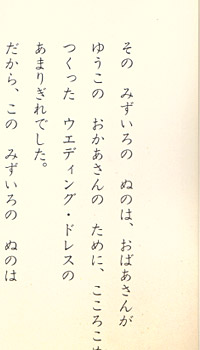 その　みずいろの　ぬのは、おばあさんが
ゆうこの　おかあさんの　ために、こころこ
つくった　ウエディング・ドレスの
あまりぎれでした。
だから、この　みずいろの　ぬのは